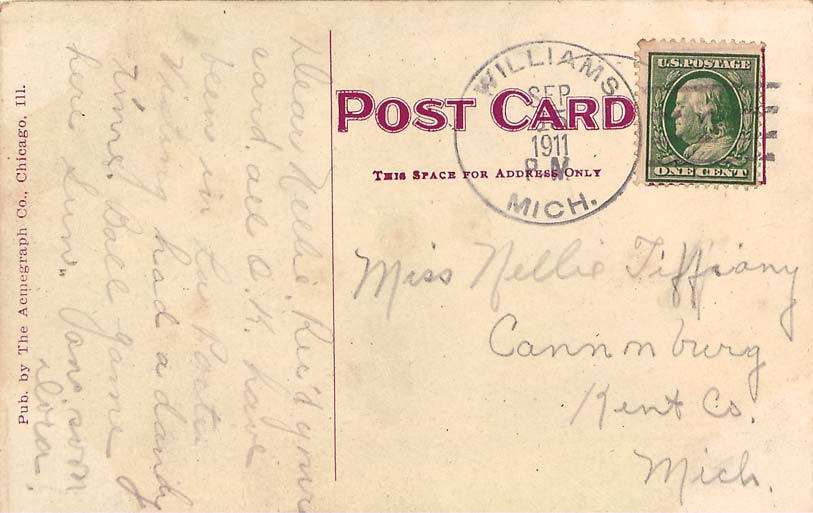 Pub. by The Acmegraph Co., Chicago, Ill.
Dear Nellie, Rec'd your
card. all O.K. have
been in La Porte
visiting had a dandy
time. Ball game
here Sun.. soon
POST CARD
THIS SPACE FOR ADDRESS ONLY
WILLIAMS
SEP
1911
P.M.
MICH.
U.S. POSTAGE
ONE CENT
Miss Nellie Tiffiany
Cannonburg
Kent Co.
Mich.